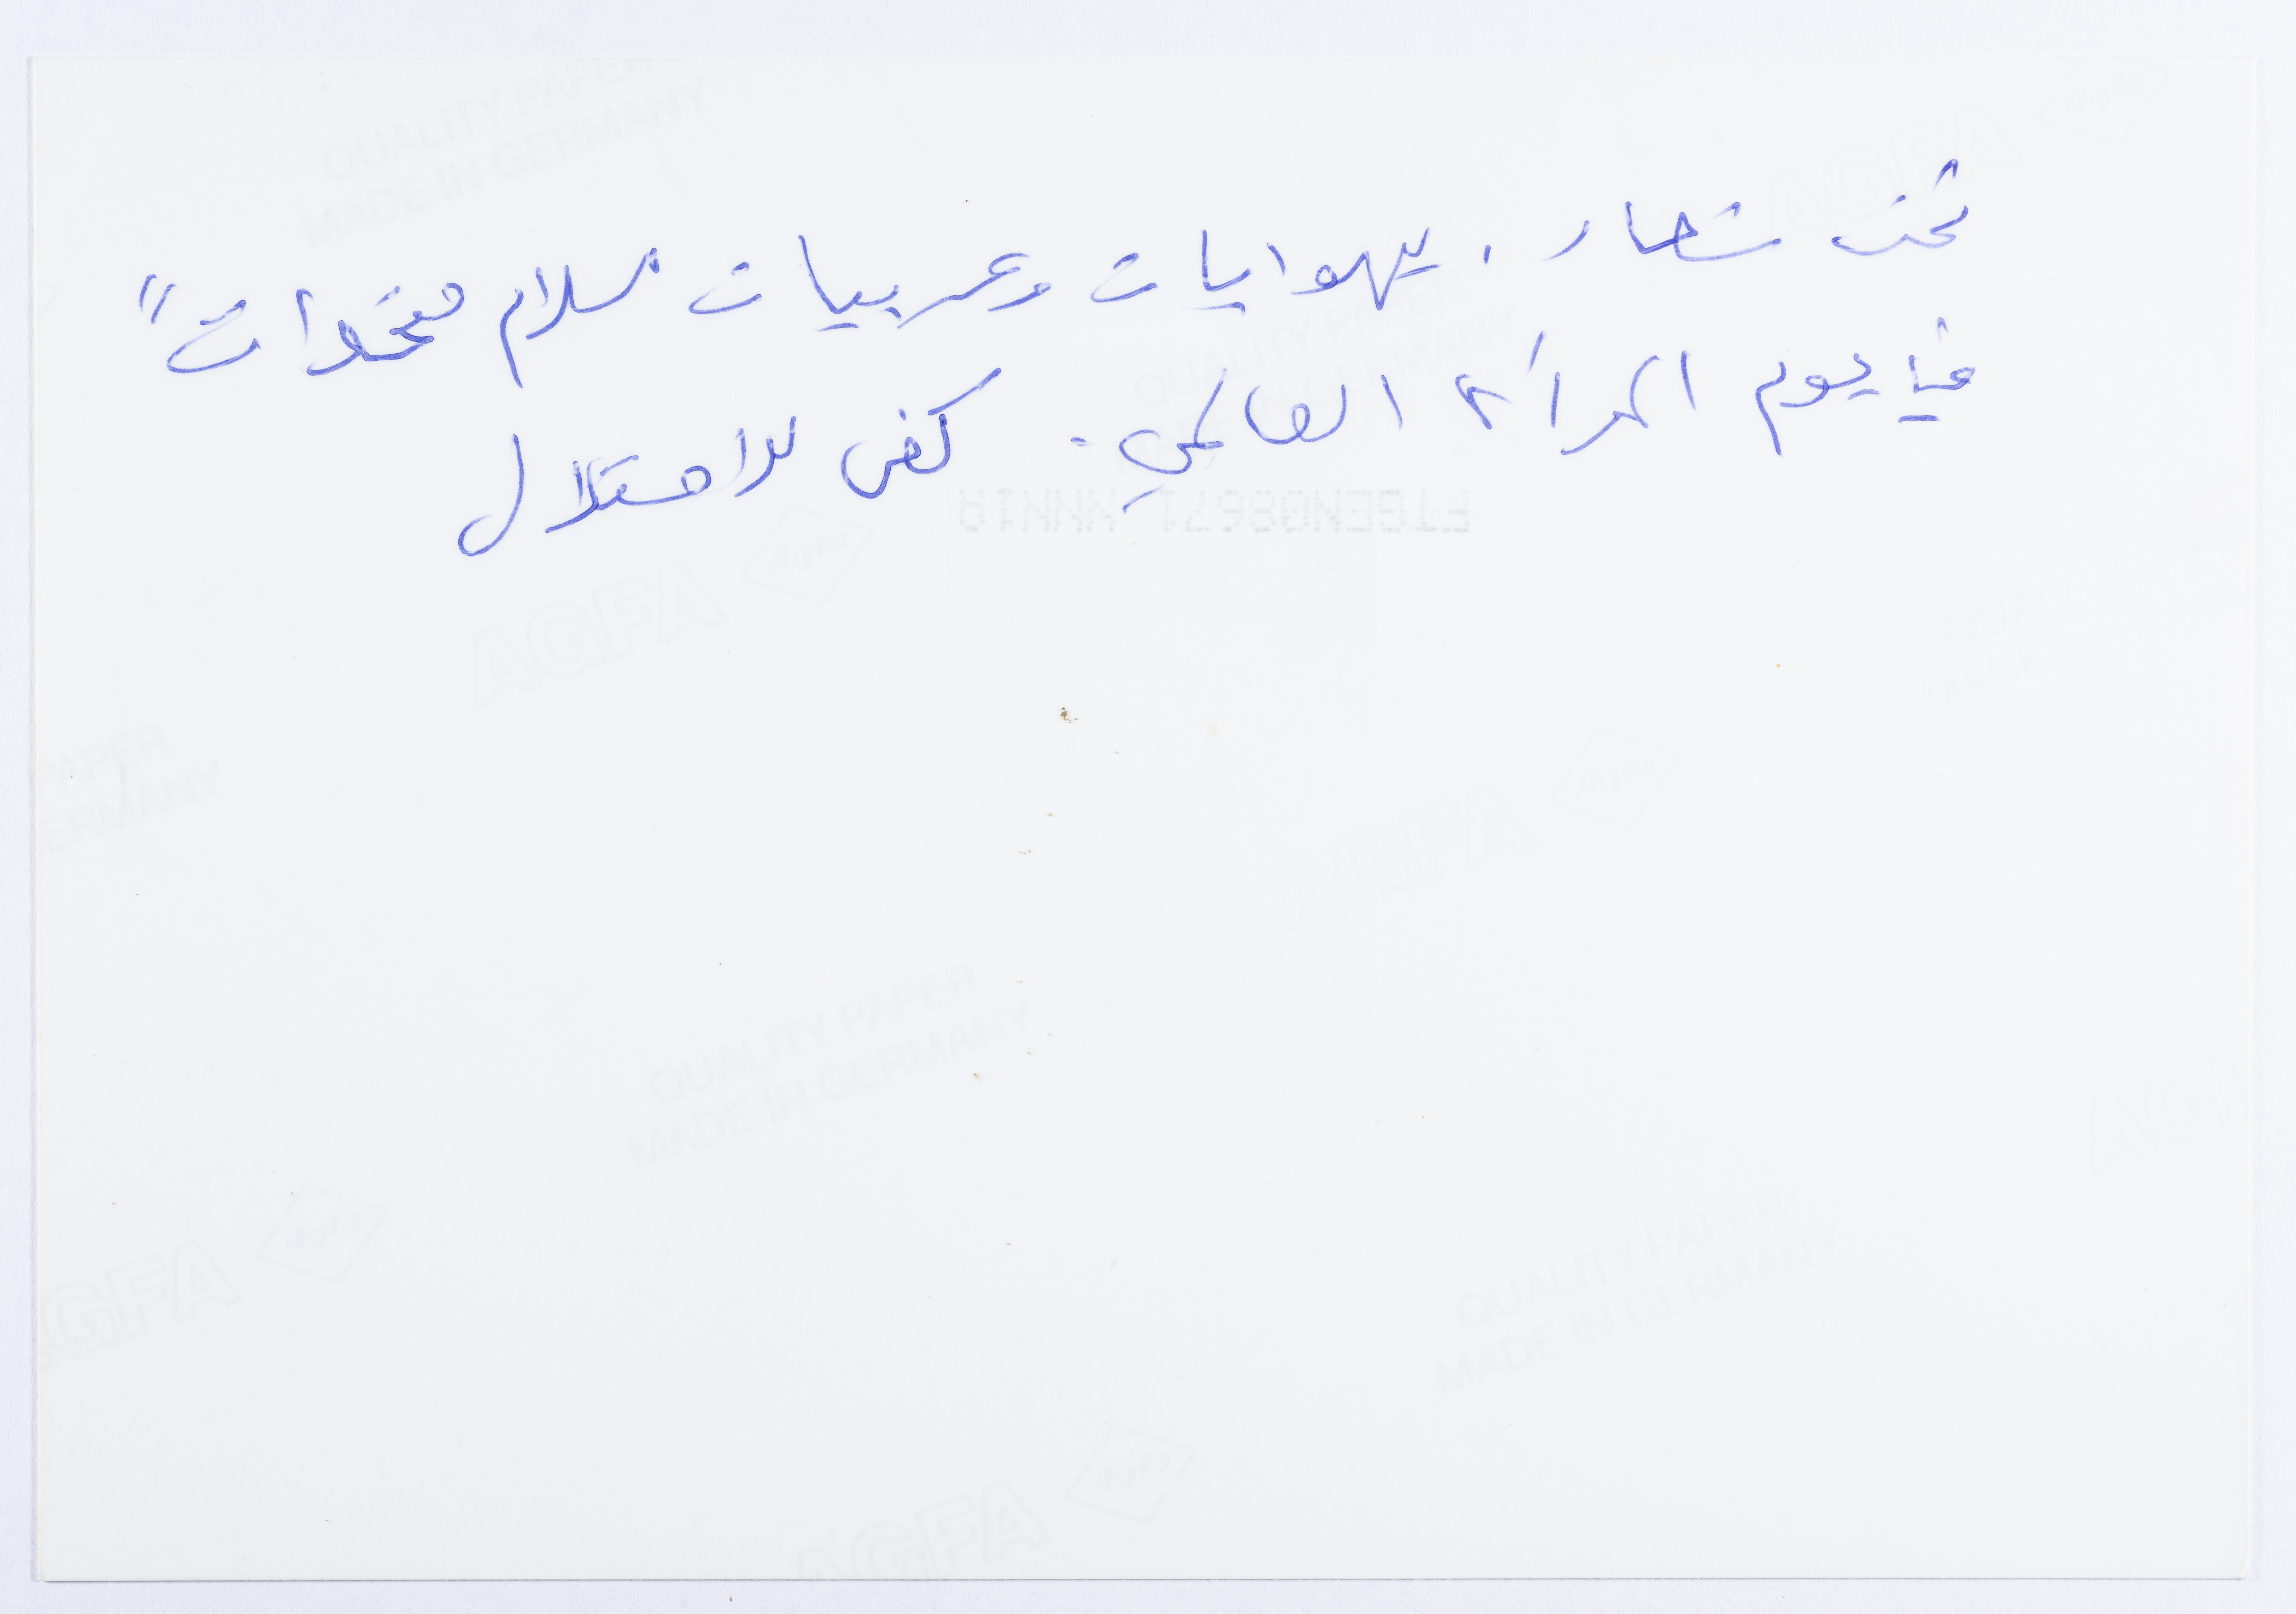 تحت شعار "يهوديات وعربيات للسلام متحدات"
في يوم المرأة العالمي. كفى للاحتلال
FTGEN08671 NNN1A
QUALITY PAPER
MADE IN GERMANY
AGFA